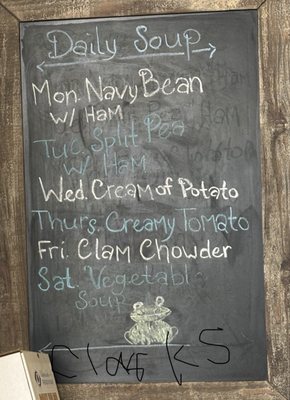 Daily Soup
Mon. Navy Bean
w/ Ham
Tue. Split Pea
w/ Ham
Wed. Cream of Potato
Thurs. Creamy Tomato
Fri. Clam Chowder
Sat. Vegetabl
Soup